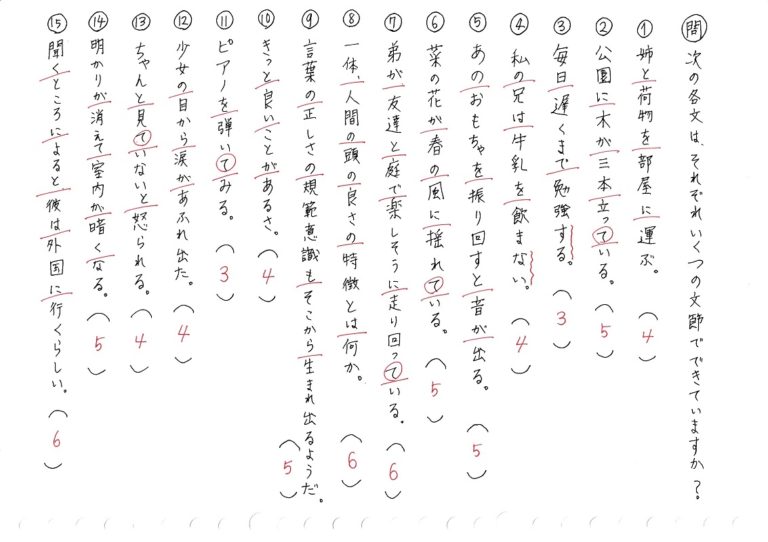 問 次の各文は、それぞれいくつの文節でできていますか?
① 姉と荷物を部屋に運ぶ。(4)
② 公園に木が三本立っている。(5)
③ 毎日遅くまで勉強する。(3)
④ 私の兄は牛乳を飲まない。(4)
⑤ あのおもちゃを振り回すと音が出る。(5)
⑥ 菜の花が春の風に揺れている。(5)
⑦ 弟が友達と庭で楽しそうに走り回っている。(6)
⑧ 一体、人間の頭の良さの特徴とは何か。(6)
⑨ 言葉の正しさの規範意識もそこから生まれ出るようだ。(5)
⑩ きっと良いことがあるさ。(4)
⑪ ピアノを弾いてみる。(3)
⑫ 少女の目から涙があふれ出た。(4)
⑬ ちゃんと見ていないと怒られる。(4)
⑭ 明かりが消えて室内が暗くなる。(5)
⑮ 聞くところによると彼は外国に行くらしい。(6)